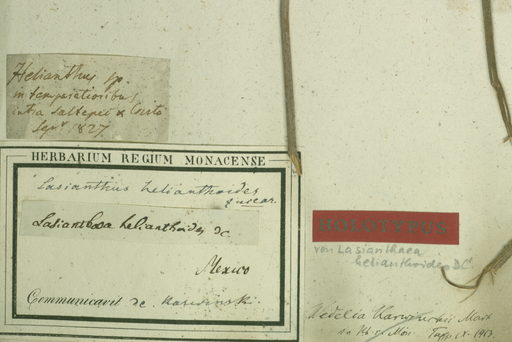 Helianthus sp.
in temperatioribus
intra Saltepec &
Sept. 1827
HERBARIUM REGIUM MONACENSE
Lasianthus helianthoides
zuccar.
Lasianthaea helianthoides DC
Mexico
Communicavit de Karwinski
HOLOTYPUS
von Lasianthaea
helianthoides DC
Wedelia Karwinskii Mart